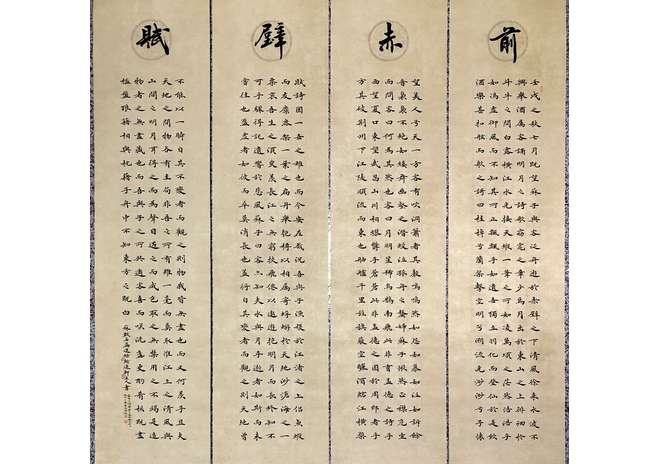 前赤壁賦
壬戌之秋七月既望蘇子與客泛舟遊於赤壁之下清風徐來水波不
興舉酒屬客誦明月之詩歌窈窕之章少焉月出於東山之上徘徊於
斗牛之間白露橫江水光接天縱一葦之所如凌萬頃之茫然浩浩乎
如馮虛御風而不知其所止飄飄乎如遺世獨立羽化而登仙於是飲
酒樂甚扣舷而歌之歌曰桂棹兮蘭槳擊空明兮溯流光渺渺兮予懷
望美人兮天一方客有吹洞簫者其聲嗚嗚然如怨如慕如泣如訴餘
音裊裊不絕如縷舞幽壑之潛蛟泣孤舟之嫠婦蘇子愀然正襟危坐
而問客曰何為其然也客曰月明星稀烏鵲南飛此非曹孟德之詩乎
西望夏口東望武昌山川相繆鬱乎蒼蒼此非孟德之困於周郎者乎
方其破荊州下江陵順流而東也舳艫千里旌旗蔽空釃酒臨江橫槊
賦詩固一世之雄也而今安在哉況吾與子漁樵於江渚之上侶魚蝦
而友麋鹿駕一葉之扁舟舉匏樽以相屬寄蜉蝣於天地渺滄海之一
粟哀吾生之須臾羨長江之無窮挾飛仙以遨遊抱明月而長終知不
可乎驟得託遺響於悲風蘇子曰客亦知夫水與月乎逝者如斯而未
嘗往也盈虛者如彼而卒莫消長也蓋將自其變者而觀之則天地曾
不能以一瞬自其不變者而觀之則物我皆無盡也而又何羨乎且夫
天地之間物各有主苟非吾之所有雖一毫而莫取惟江上之清風與
山間之明月耳得之而為聲目遇之而成色取之無禁用之不竭是造
物者之無盡藏也而吾與子之所共適客喜而笑洗盞更酌肴核既盡
杯盤狼籍相與枕藉乎舟中不知東方之既白